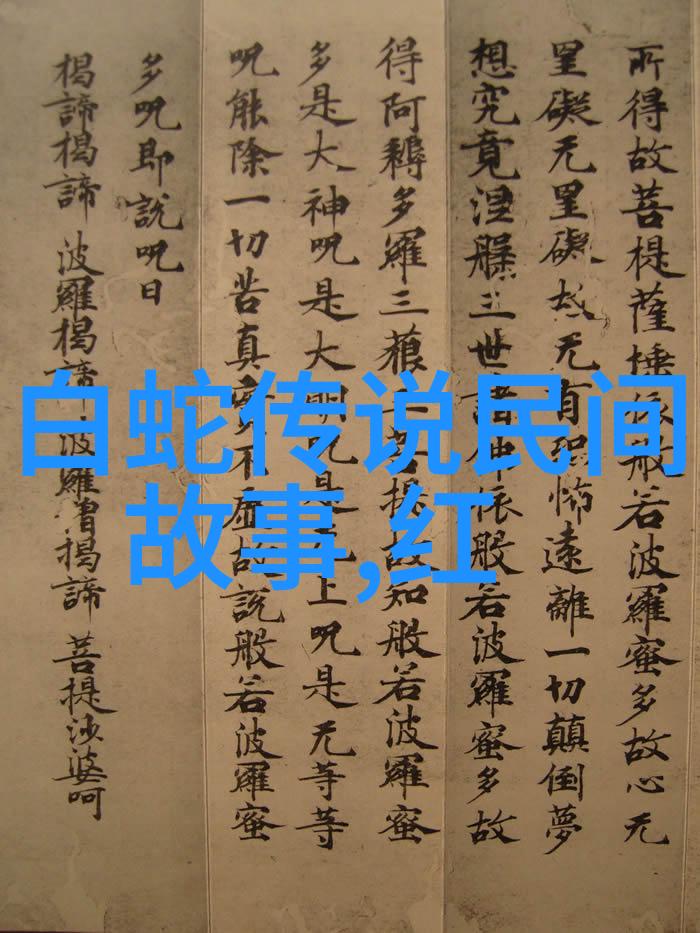 所得故菩提薩埵依般若波羅蜜多故心无
罣礙无罣礙故无有恐怖遠離一切顛倒夢
想究竟涅槃三世諸佛依般若波羅蜜多故
得阿耨多羅三藐三菩提故知般若波羅蜜
多是大神呪是大明呪是无上呪是无等等
呪能除一切苦真實不虛故說般若波羅蜜
多呪即說呪曰
揭諦揭諦 波羅揭諦 波羅僧揭諦 菩提沙婆呵
白蛇传说民间
故事,红